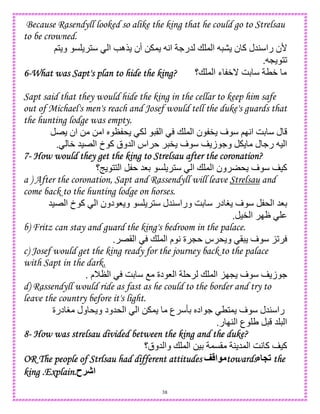 Because Rasendyll looked so alike the king that he could go to Strelsau
to be crowned.
لأن راسندل كان يشبه الملك لدرجة انه يمكن أن يذهب الي ستريلسو ويتم
تتويجه.
6-What was Sapt's plan to hide the king? ما خطة سابت لاخفاء الملك؟
Sapt said that they would hide the king in the cellar to keep him safe
out of Michael's men's reach and Josef would tell the duke's guards that
the hunting lodge was empty.
قال سابت انهم سوف يخفون الملك في القبو لكي يحفظوه امن من ان يصل
اليه رجال مايكل وجوزيف سوف يخبر حراس الدوق كوخ الصيد خالي.
7- How would they get the king to Strelsau after the coronation?
كيف سوف يحضرون الملك الي ستريلسو بعد حفل التتويج؟
a ) After the coronation, Sapt and Rassendyll will leave Strelsau and
come back to the hunting lodge on horses.
بعد الحفل سوف يغادر سابت وراسندل ستريلسو ويعودون الي كوخ الصيد
علي ظهر الخيل.
b) Fritz can stay and guard the king's bedroom in the palace.
فرتز سوف يبقي ويحرس حجرة نوم الملك في القصر.
c) Josef would get the king ready for the journey back to the palace
with Sapt in the dark.
جوزيف سوف يجهز الملك لرحلة العودة مع سابت في الظلام .
d) Rassendyll would ride as fast as he could to the border and try to
leave the country before it's light.
راسندل سوف يمتطي جواده بأسرع ما يمكن الي الحدود ويحاول مغادرة
البلد قبل طلوع النهار.
8- How was strelsau divided between the king and the duke?
كيف كانت المدينة مقسمة بين الملك والدوق؟
OR The people of Strlsau had different attitudes مواقف towards تجاه the
king .Explain. اشرح
38